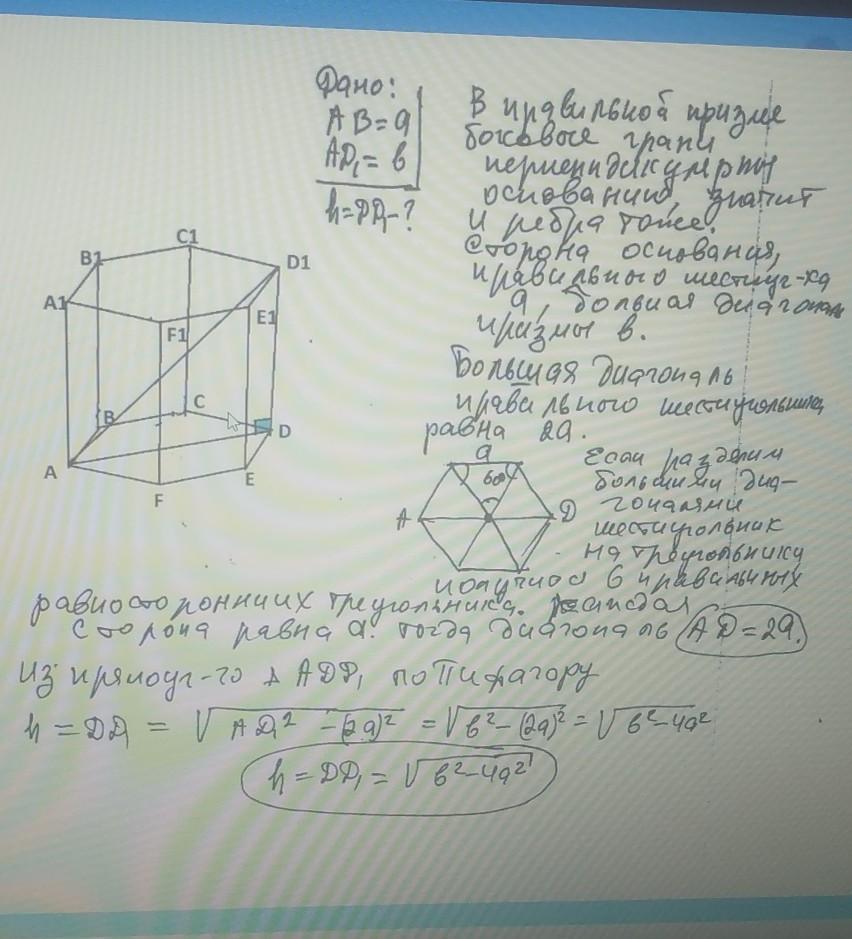 Дано:
AB=a
AD₁=в
h=DD₁-?
В правильной призме
боковые грани
перпендикулярны
основанию, значит
и ребра тоже.
Сторона основания,
правильного шестиуг-ка
a, большая диагональ
призмы в.
Большая диагональ
правильного шестиугольника
равна 2a.
B1
C1
D1
A1
F1
E1
B
C
D
A
E
F
a
60°
A
D
Если разделим
большими диа-
гоналями
шестиугольник
на треугольники
получиоь 6 правильных
равносторонних треугольника.
сторона равна a. тогда диагональ AD=2a.
Из прямоуг-го Δ ADD₁ по Пифагору
h = DD₁ = √AD₁² -(2a)² = √в²-(2a)² = √в²-4a²
h = DD₁ = √в²-4a²